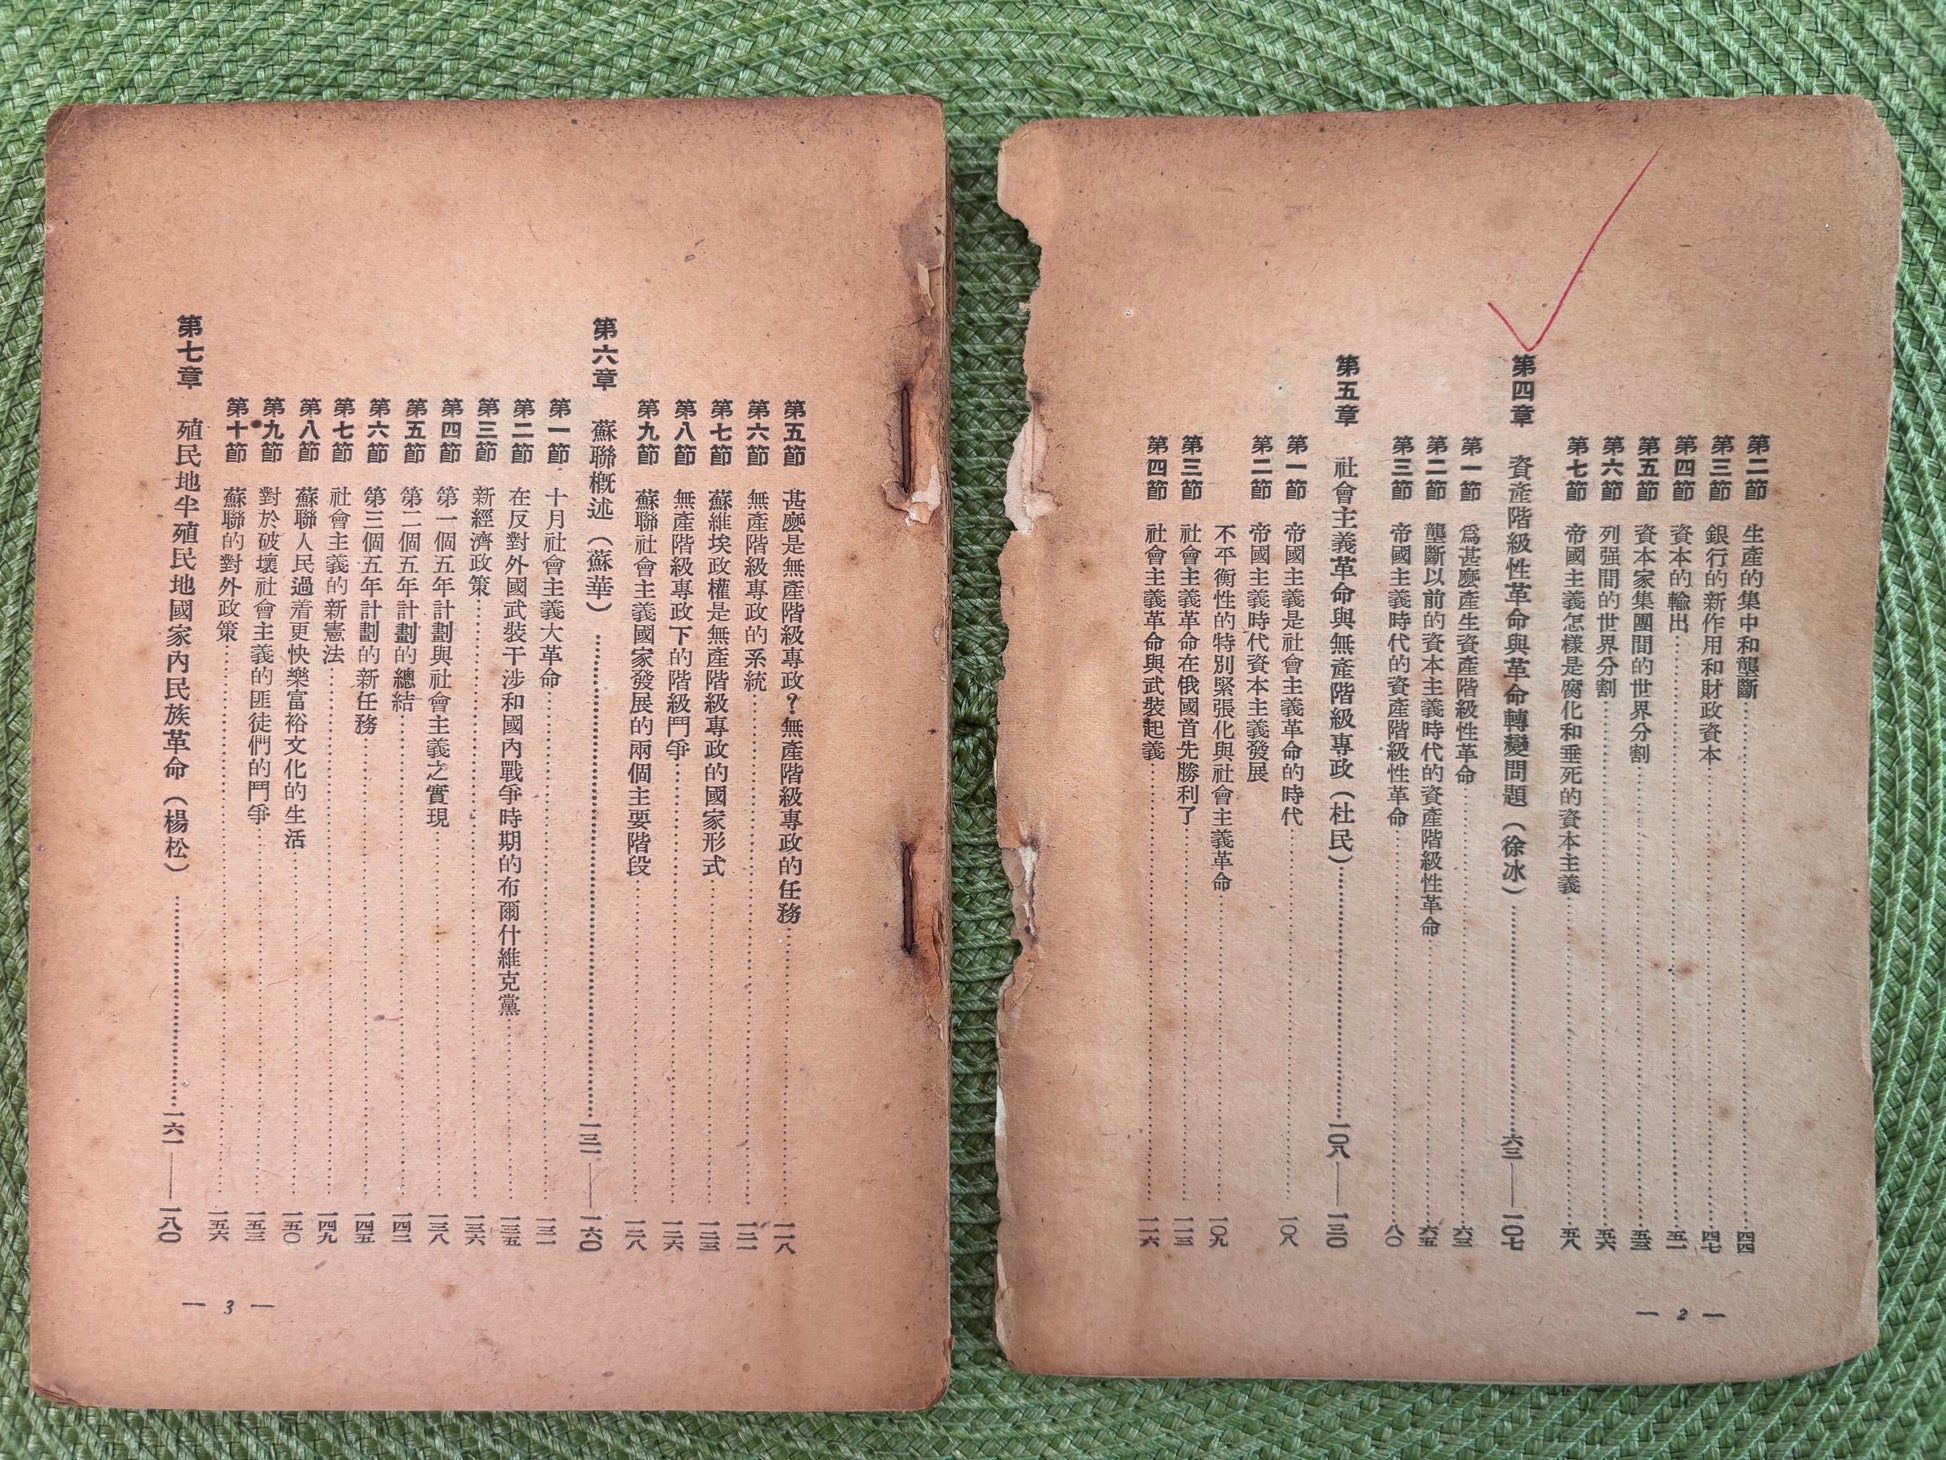 第二節 生產的集中和壟斷……四四
第三節 銀行的新作用和財政資本……四七
第四節 資本的輸出……五一
第五節 資本家集團間的世界分割……五三
第六節 列强間的世界分割……五六
第七節 帝國主義怎樣是腐化和垂死的資本主義……五八
第四章 資產階級性革命與革命轉變問題（徐冰）……六三——一〇七
第一節 爲甚麼產生資產階級性革命……六三
第二節 壟斷以前的資本主義時代的資產階級性革命……六五
第三節 帝國主義時代的資產階級性革命……八〇
第五章 社會主義革命與無產階級專政（杜民）……一〇八——一三〇
第一節 帝國主義是社會主義革命的時代……一〇八
第二節 帝國主義時代資本主義發展
不平衡性的特別緊張化與社會主義革命……一〇九
第三節 社會主義革命在俄國首先勝利了……一一三
第四節 社會主義革命與武裝起義……一一六
— 2 —
第五節 甚麼是無產階級專政？無產階級專政的任務……一一八
第六節 無產階級專政的系統……一二一
第七節 蘇維埃政權是無產階級專政的國家形式……一二三
第八節 無產階級專政下的階級鬥爭……一二六
第九節 蘇聯社會主義國家發展的兩個主要階段……一二八
第六章 蘇聯概述（蘇華）……一三一——一六〇
第一節 十月社會主義大革命……一三一
第二節 在反對外國武裝干涉和國內戰爭時期的布爾什維克黨……一三五
第三節 新經濟政策……一三六
第四節 第一個五年計劃與社會主義之實現……一三八
第五節 第二個五年計劃的總結……一四二
第六節 第三個五年計劃的新任務……一四五
第七節 社會主義的新憲法……一四九
第八節 蘇聯人民過着更快樂富裕文化的生活……一五〇
第九節 對於破壞社會主義的匪徒們的鬥爭……一五三
第十節 蘇聯的對外政策……一五六
第七章 殖民地半殖民地國家內民族革命（楊松）……一六一——一八〇
— 3 —